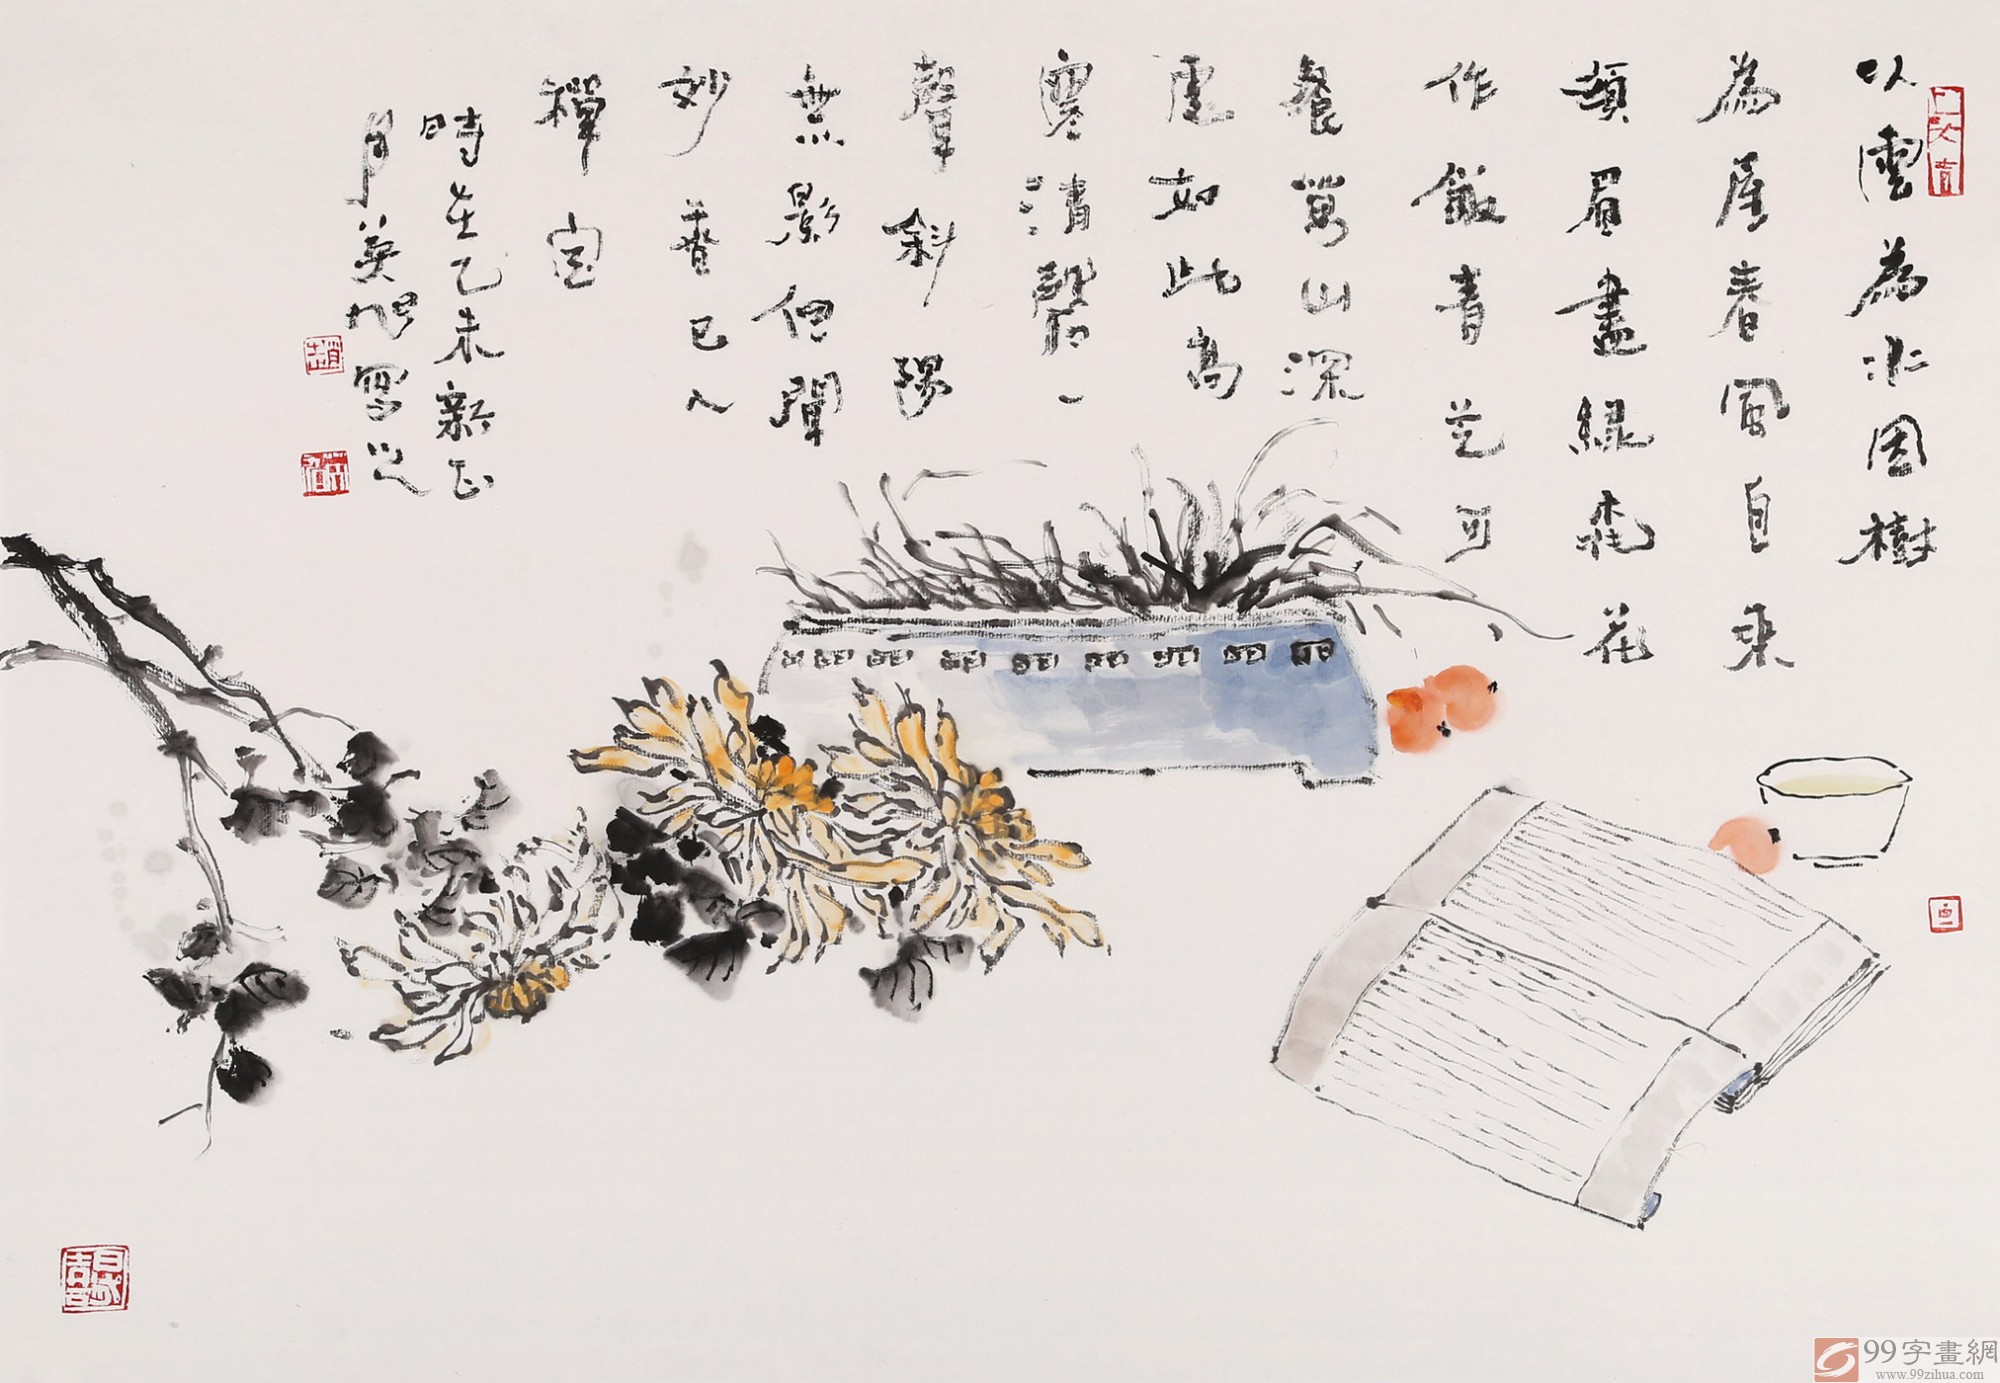 以雲為水因樹
為屋春風自來
須眉盡綠松花
作飯青芝可
餐萬山深
處如此高
寒清磬一
聲斜陽
無影但聞
妙香已入
禪定
時在乙未新正
月英旭寫之
99字畫網
www.99zihua.com